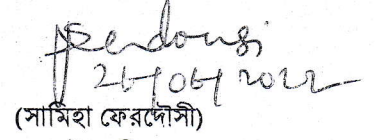 Ferdousi
26/06/2022
(সামিহা ফেরদৌসী)